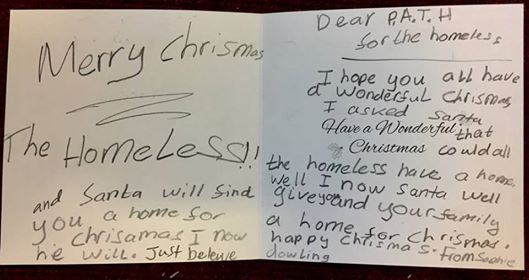 Merry Chrismas
The HomeLess!!
and Santa will find
you a home for
chrisamas I now
he will. Just beleve
Dear P.A.T.H
for the homeless
I hope you all have
a wonderful christmas
I asked santa
Have a Wonderful that
Christmas could all
the homeless have a home.
well I now santa well
give you and your family
a home for Chrismas.
happy Chrismas. from Sophie
dowling